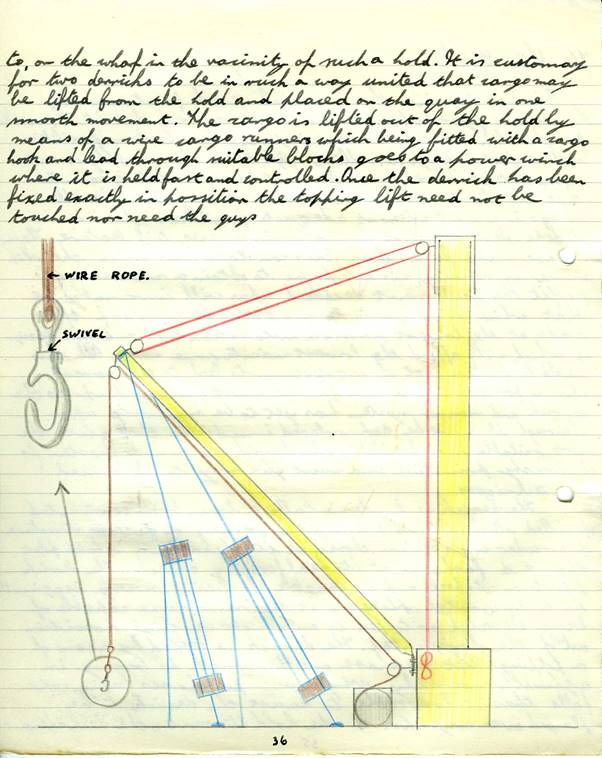 to, or the wharf in the vacinity of such a hold. It is customary
for two derricks to be in such a way united that cargo may
be lifted from the hold and placed on the quay in one
smooth movement. The cargo is lifted out of the hold by
means of a wire cargo runners which being fitted with a cargo
hook and lead through suitable blocks goes to a power winch
where it is held fast and controlled. Once the derrick has been
fixed exactly in possition the topping lift need not be
touched nor need the guys
WIRE ROPE.
SWIVEL
36